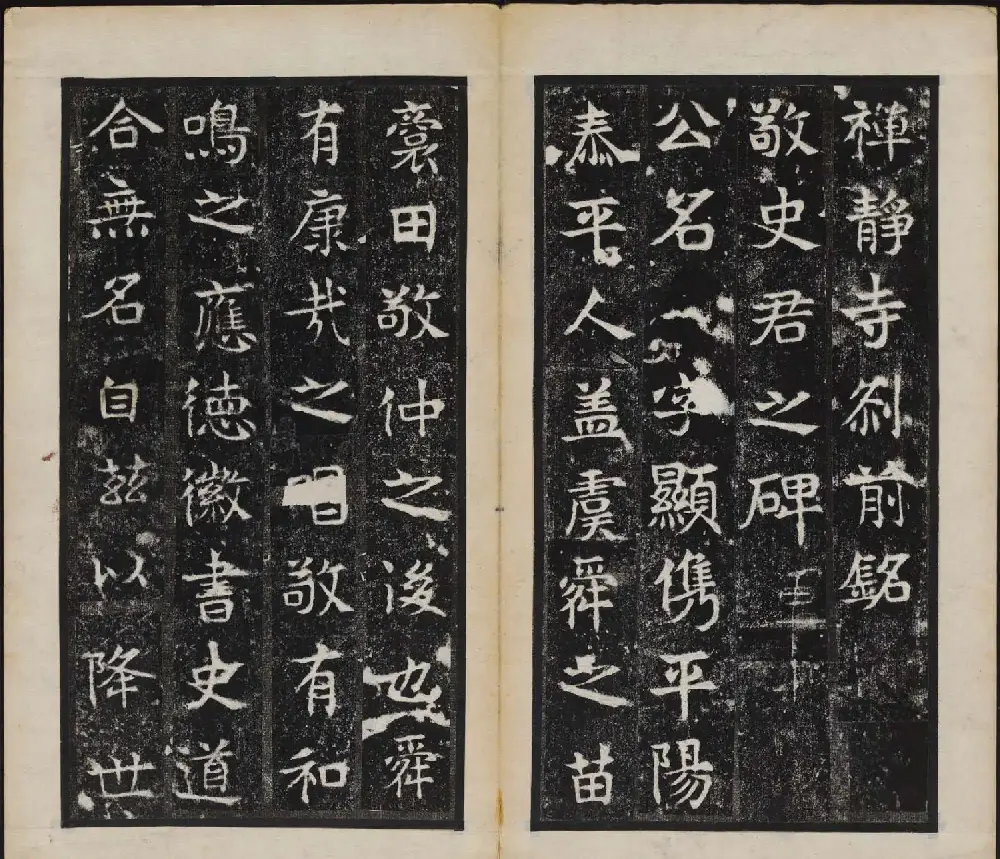 禪靜寺刹前銘
敬史君之碑
公名字顯儁平陽
泰平人盖虞舜之苗
裔田敬仲之後也舜
有康哉之唱敬有和
鳴之應徳徽書史道
合無名自茲以降世